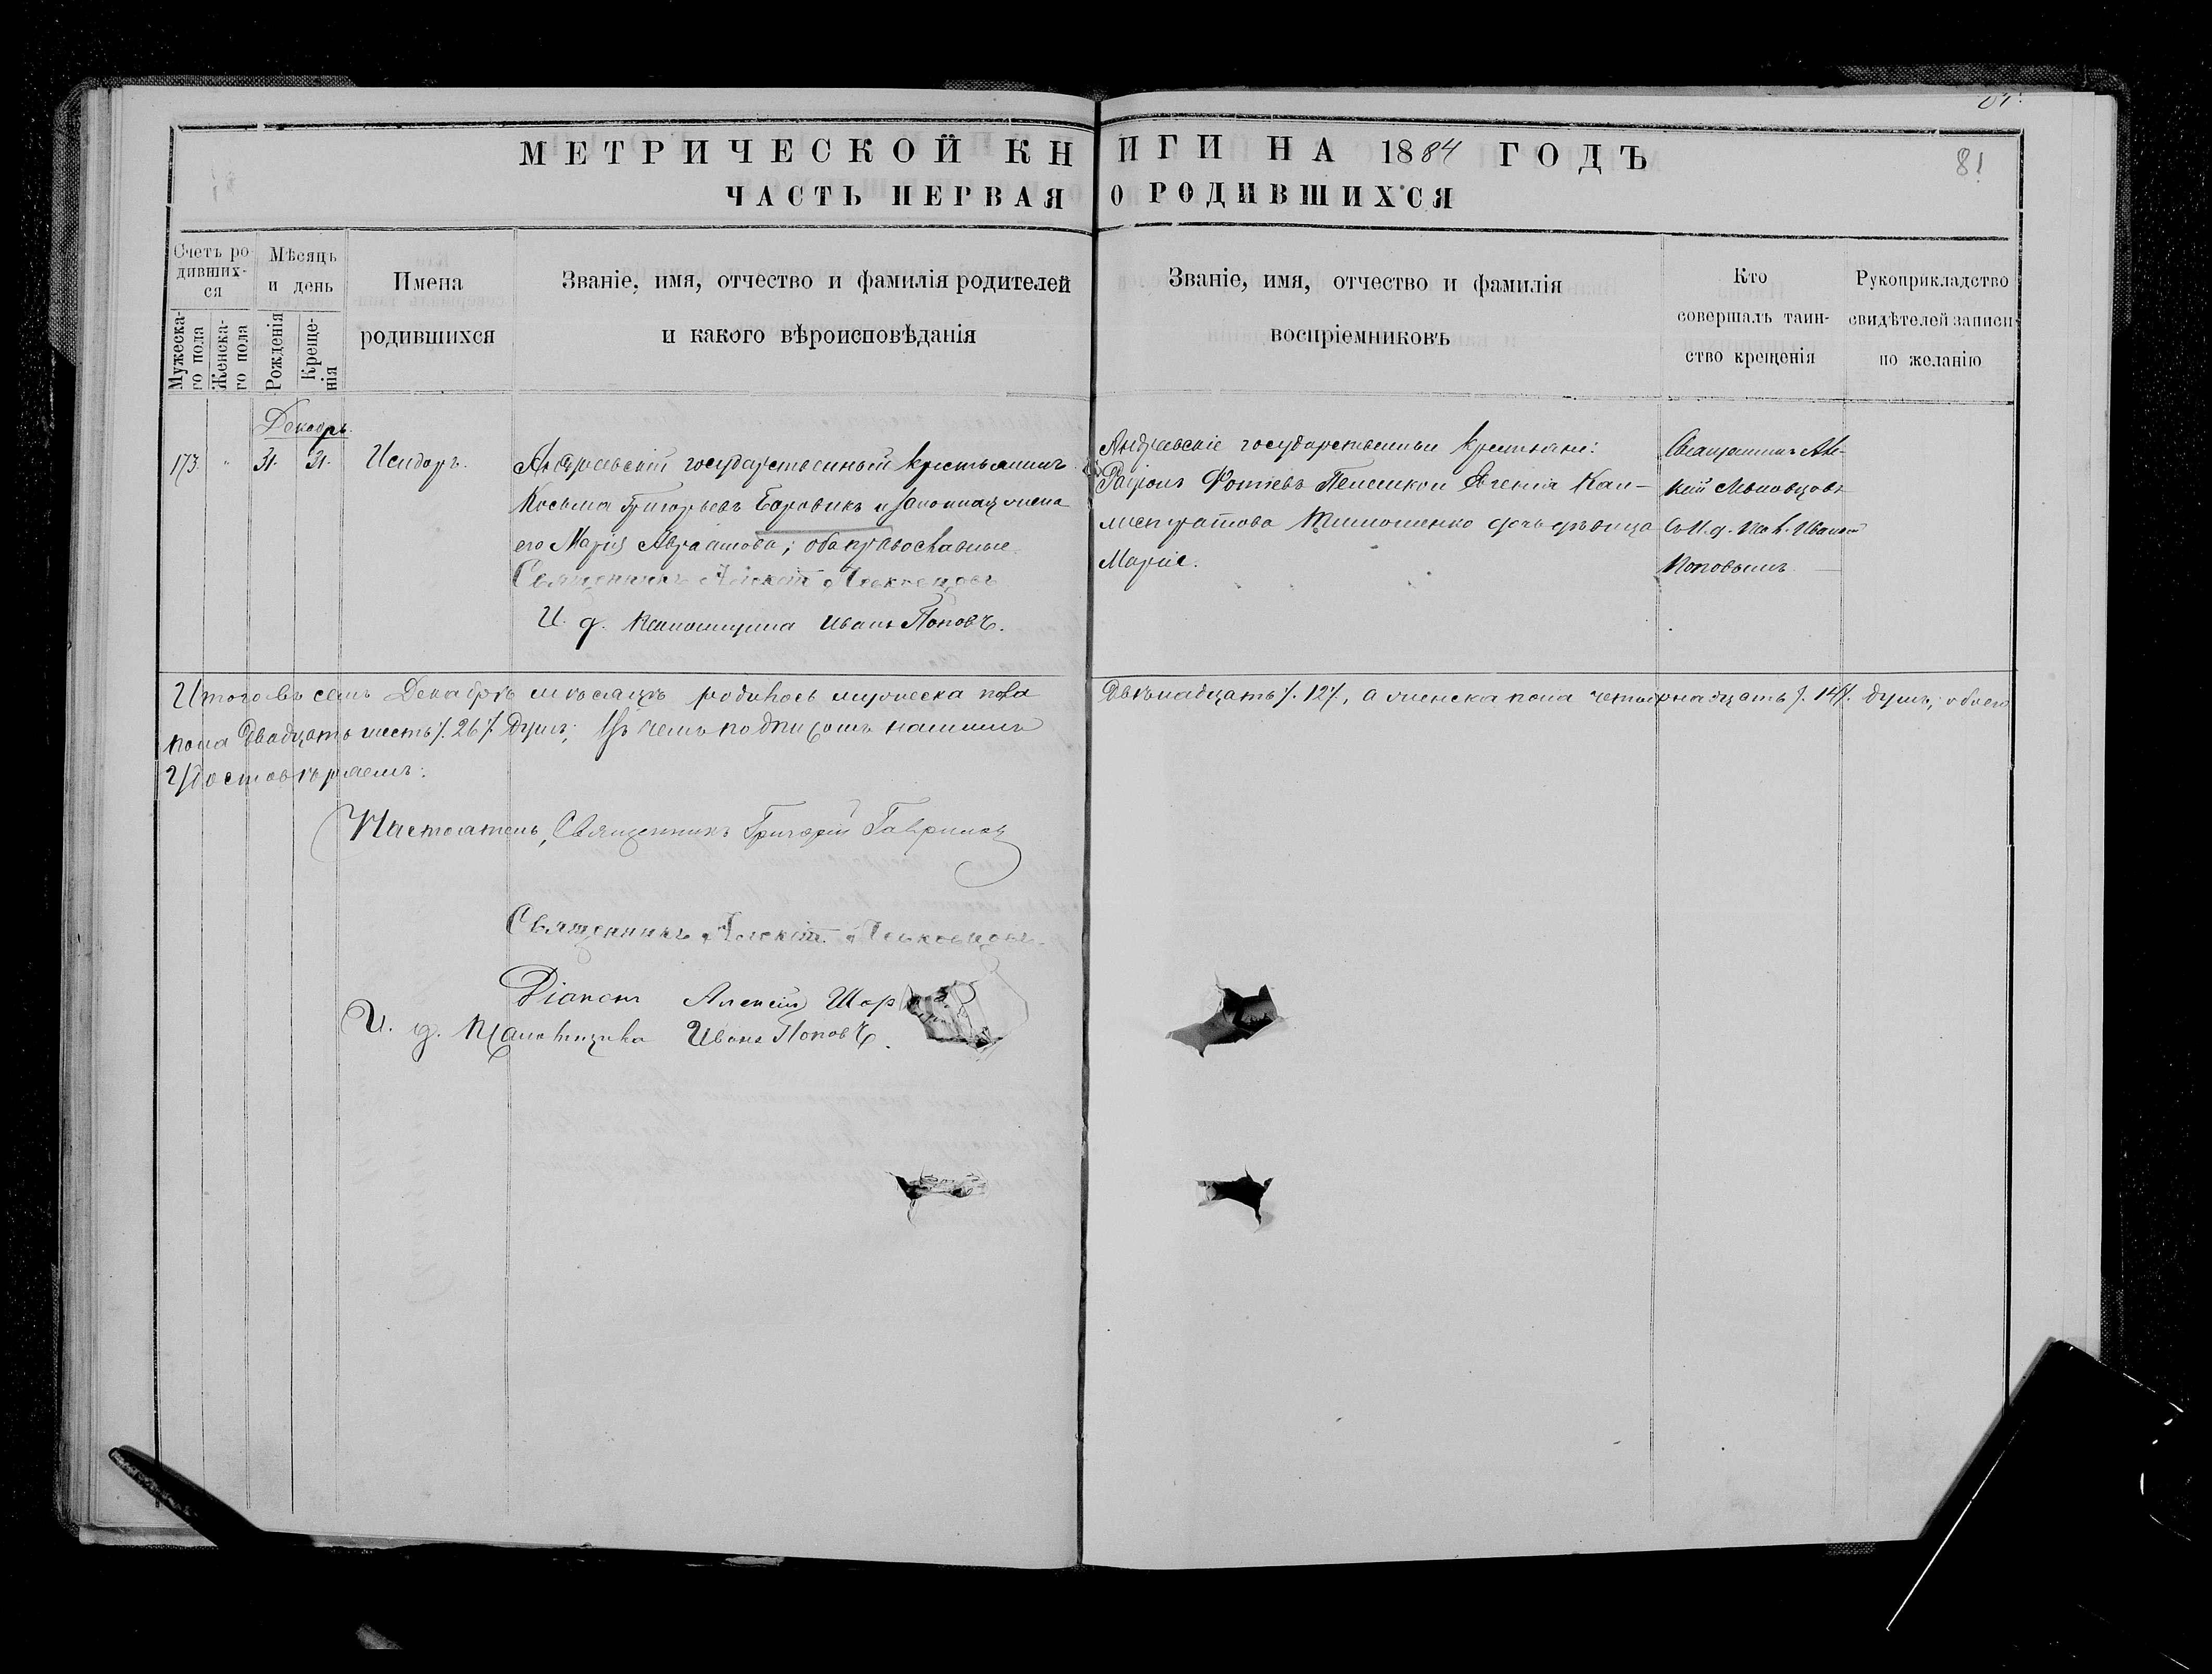 МЕТРИЧЕСКОЙ КНИГИ НА 1884 ГОДЪ
81
ЧАСТЬ ПЕРВАЯ О РОДИВШИХСЯ
Счетъ ро-
дивших-
ся
Мужеска-
го пола
Женска-
го пола
Мѣсяцъ
и день
Рожденія
Креще-
нія
Имена
родившихся
Званіе, имя, отчество и фамилія родителей
и какого вѣроисповѣданія
Званіе, имя, отчество и фамилія
воспріемниковъ
Кто
совершалъ таин-
ство крещенія
Рукоприкладство
свидѣтелей записи
по желанію
Декабрь.
173. " 31. 31. Исидоръ.
Андреевскій государственный крестьянинъ
Косьма Григорьевъ Боровикъ и законная жена
его Марія Авраамова; оба православные.
Священникъ Алексій
И. д. Псаломщика Иванъ Поповъ.
Андреевскіе государственные крестьяне:
Фотіевъ Евгенія Кал-
Тимошенко дочь дѣвица
Марія.
Священникъ Але-
ксій
съ И. д. Иваномъ
Поповымъ.
Итого въ семъ Декабрѣ мѣсяцѣ родилось мужеска пола Двѣнадцать /. 12 /., а женска пола четырнадцать /. 14 /. душъ; обоего
пола двадцать шесть /. 26 /. Душъ; Въ чемъ подписомъ нашимъ
Удостовѣряемъ:
Настоятель, Священникъ Григорій Гавриловъ
Священникъ Алексій
Діаконъ Алексій
И. д. Псаломщика Иванъ Поповъ.